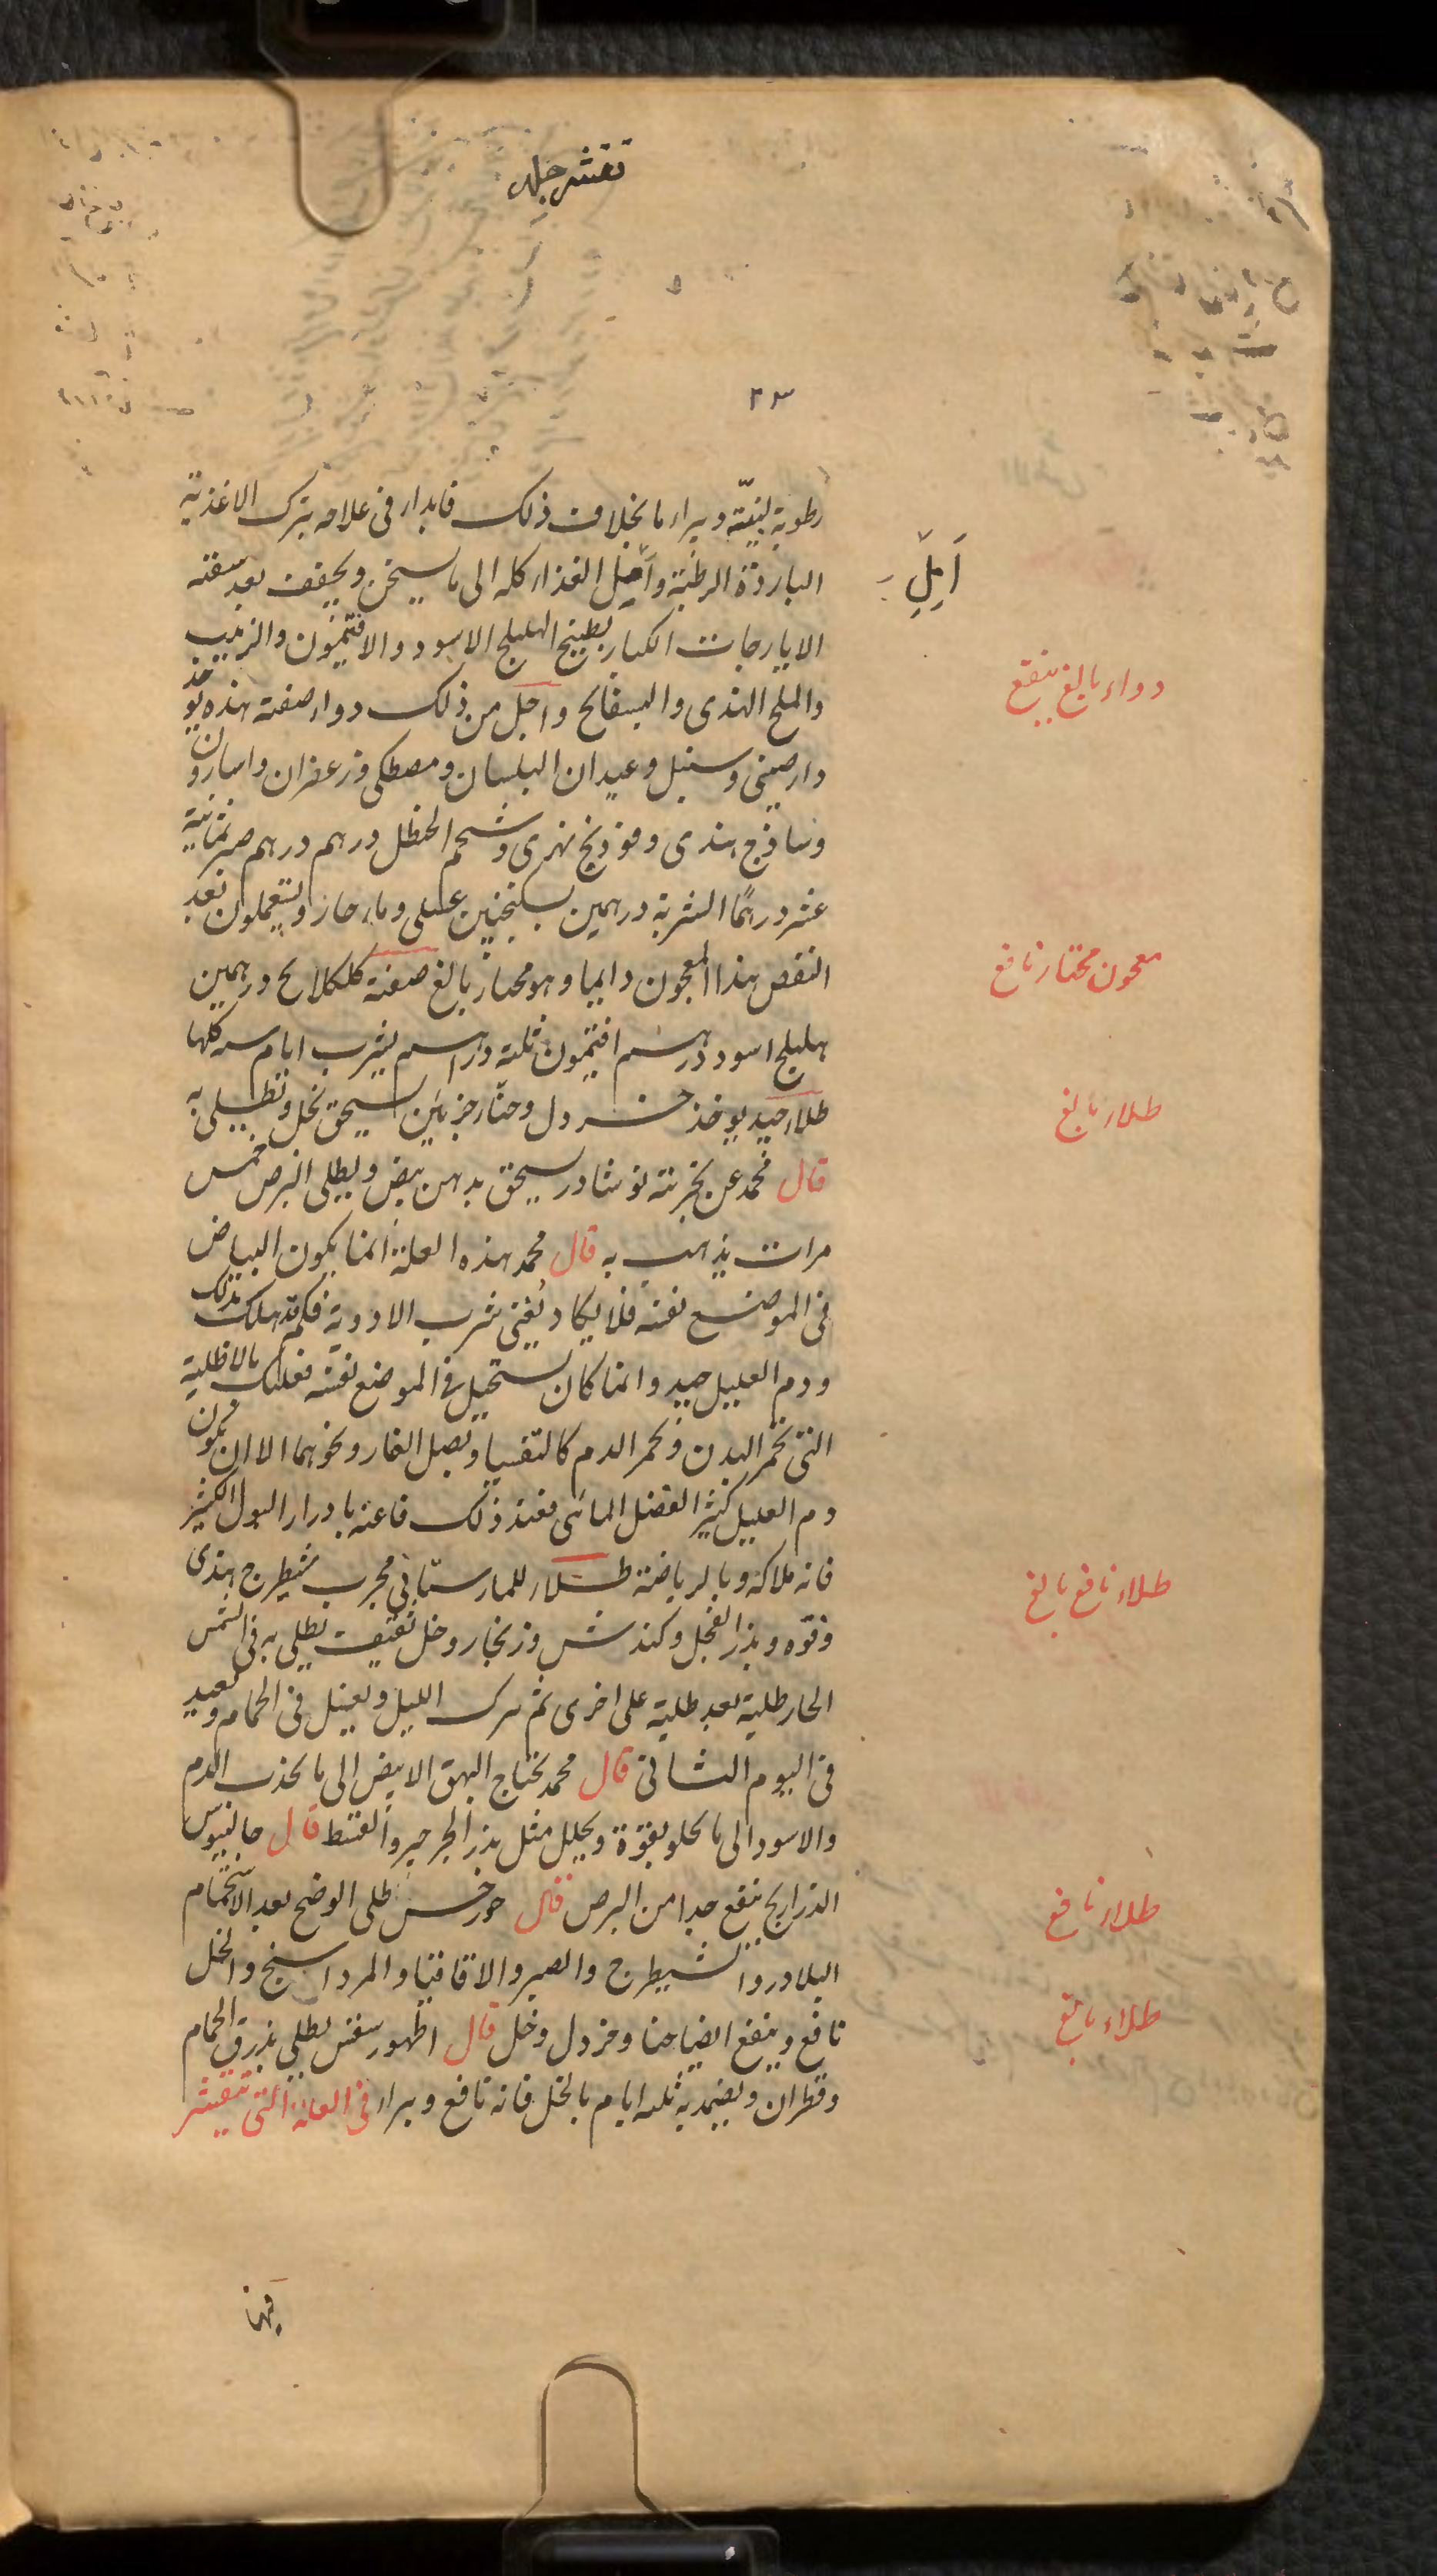 تقشر جلد
٢٣
رطوبة لبنيّة ويبراء ما بخلاف ذلك فابدا فى علاجه بترك الاغذية
الباردة الرطبة وأمل الغذاء كله الى ما يسخن ويجفف بعد سقيه
أَمِلِّ
الايارجات الكبار بطبيخ الهليلج الاسود والافتيمون والزبيب
والملح الهندى والبسفايج واجل من ذلك دواء صفته هذه يوخذ
دواء بالغ ينفع
دارصينى وسنبل وعيدان البلسان ومصطكى وزعفران واسارون
وساذج هندى وفوذنج نهرى وشحم الحنظل درهم درهم صبر ثمانية
عشر درهمًا الشربة درهمين بسكنجبين عسلى وماء حار ويستعملون بعد
النفض هذا المعجون دايما وهو مختار بالغ صفته كلكلانج درهمين
معجون مختار نافع
هليلج اسود درهم افتيمون ثلثة دراهم يشرب ايام كلها
طلاء جيد يوخذ خردل وحنّاء جزئين يسحق بخل ويطلى به
طلاء بالغ
قال محمد عن تجربته نوشادر يسحق بدهن بيض ويطلى البرص خمس
مرات يذهب به قال محمد هذه العلة انما يكون البياض
فى الموضع نفسه فلا يكاد يُغنى شرب الادوية فكم قد هلك بذلك
ودم العليل جيد وانما كان يستحيل فى الموضع نفسه فعليك بالاطلية
التى تخمر البدن وتحمر الدم كالتفسيا وبصل الفار ونحوهما الا ان يكون
دم العليل كثير الفضل المائى فعند ذلك فاعنه بادرار البول الكثير
فانه ملاكه وبالرياضة طلاء للمارستانى مجرب شيطرج هندى
طلاء نافع بالغ
وفوه وبذر الفجل وكندش وزنجار وخل ثقيف يطلى به فى الشمس
الحار طلية بعد طلية على اخرى ثم يترك الليل ويغسل فى الحمام ويعيد
فى اليوم الثانى قال محمد يحتاج البهق الابيض الى ما يجذب الدم
والاسود الى ما يجلو بقوة ويحلل مثل بذر الجرجير والقسط قال جالينوس
الذراريح ينفع جدا من البرص قال جورجس طلى الوضح بعد الاستحمام
طلاء نافع
البلادر والشيطرج والصبر والاقاقيا والمرداسنج والخل
نافع وينفع ايضا حنا وخردل وخل قال اظهورسفس يطلى بذرق الحمام
طلاء بالغ
وقطران ويضمد به ثلثه ايام بالخل فانه نافع ويبراء فى العلة التى تتقشر
فيها